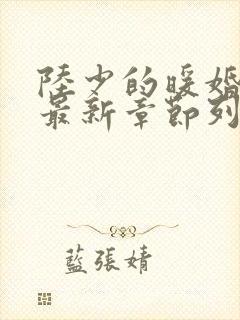 陸少的暖婚
最新章節列
藍張婧